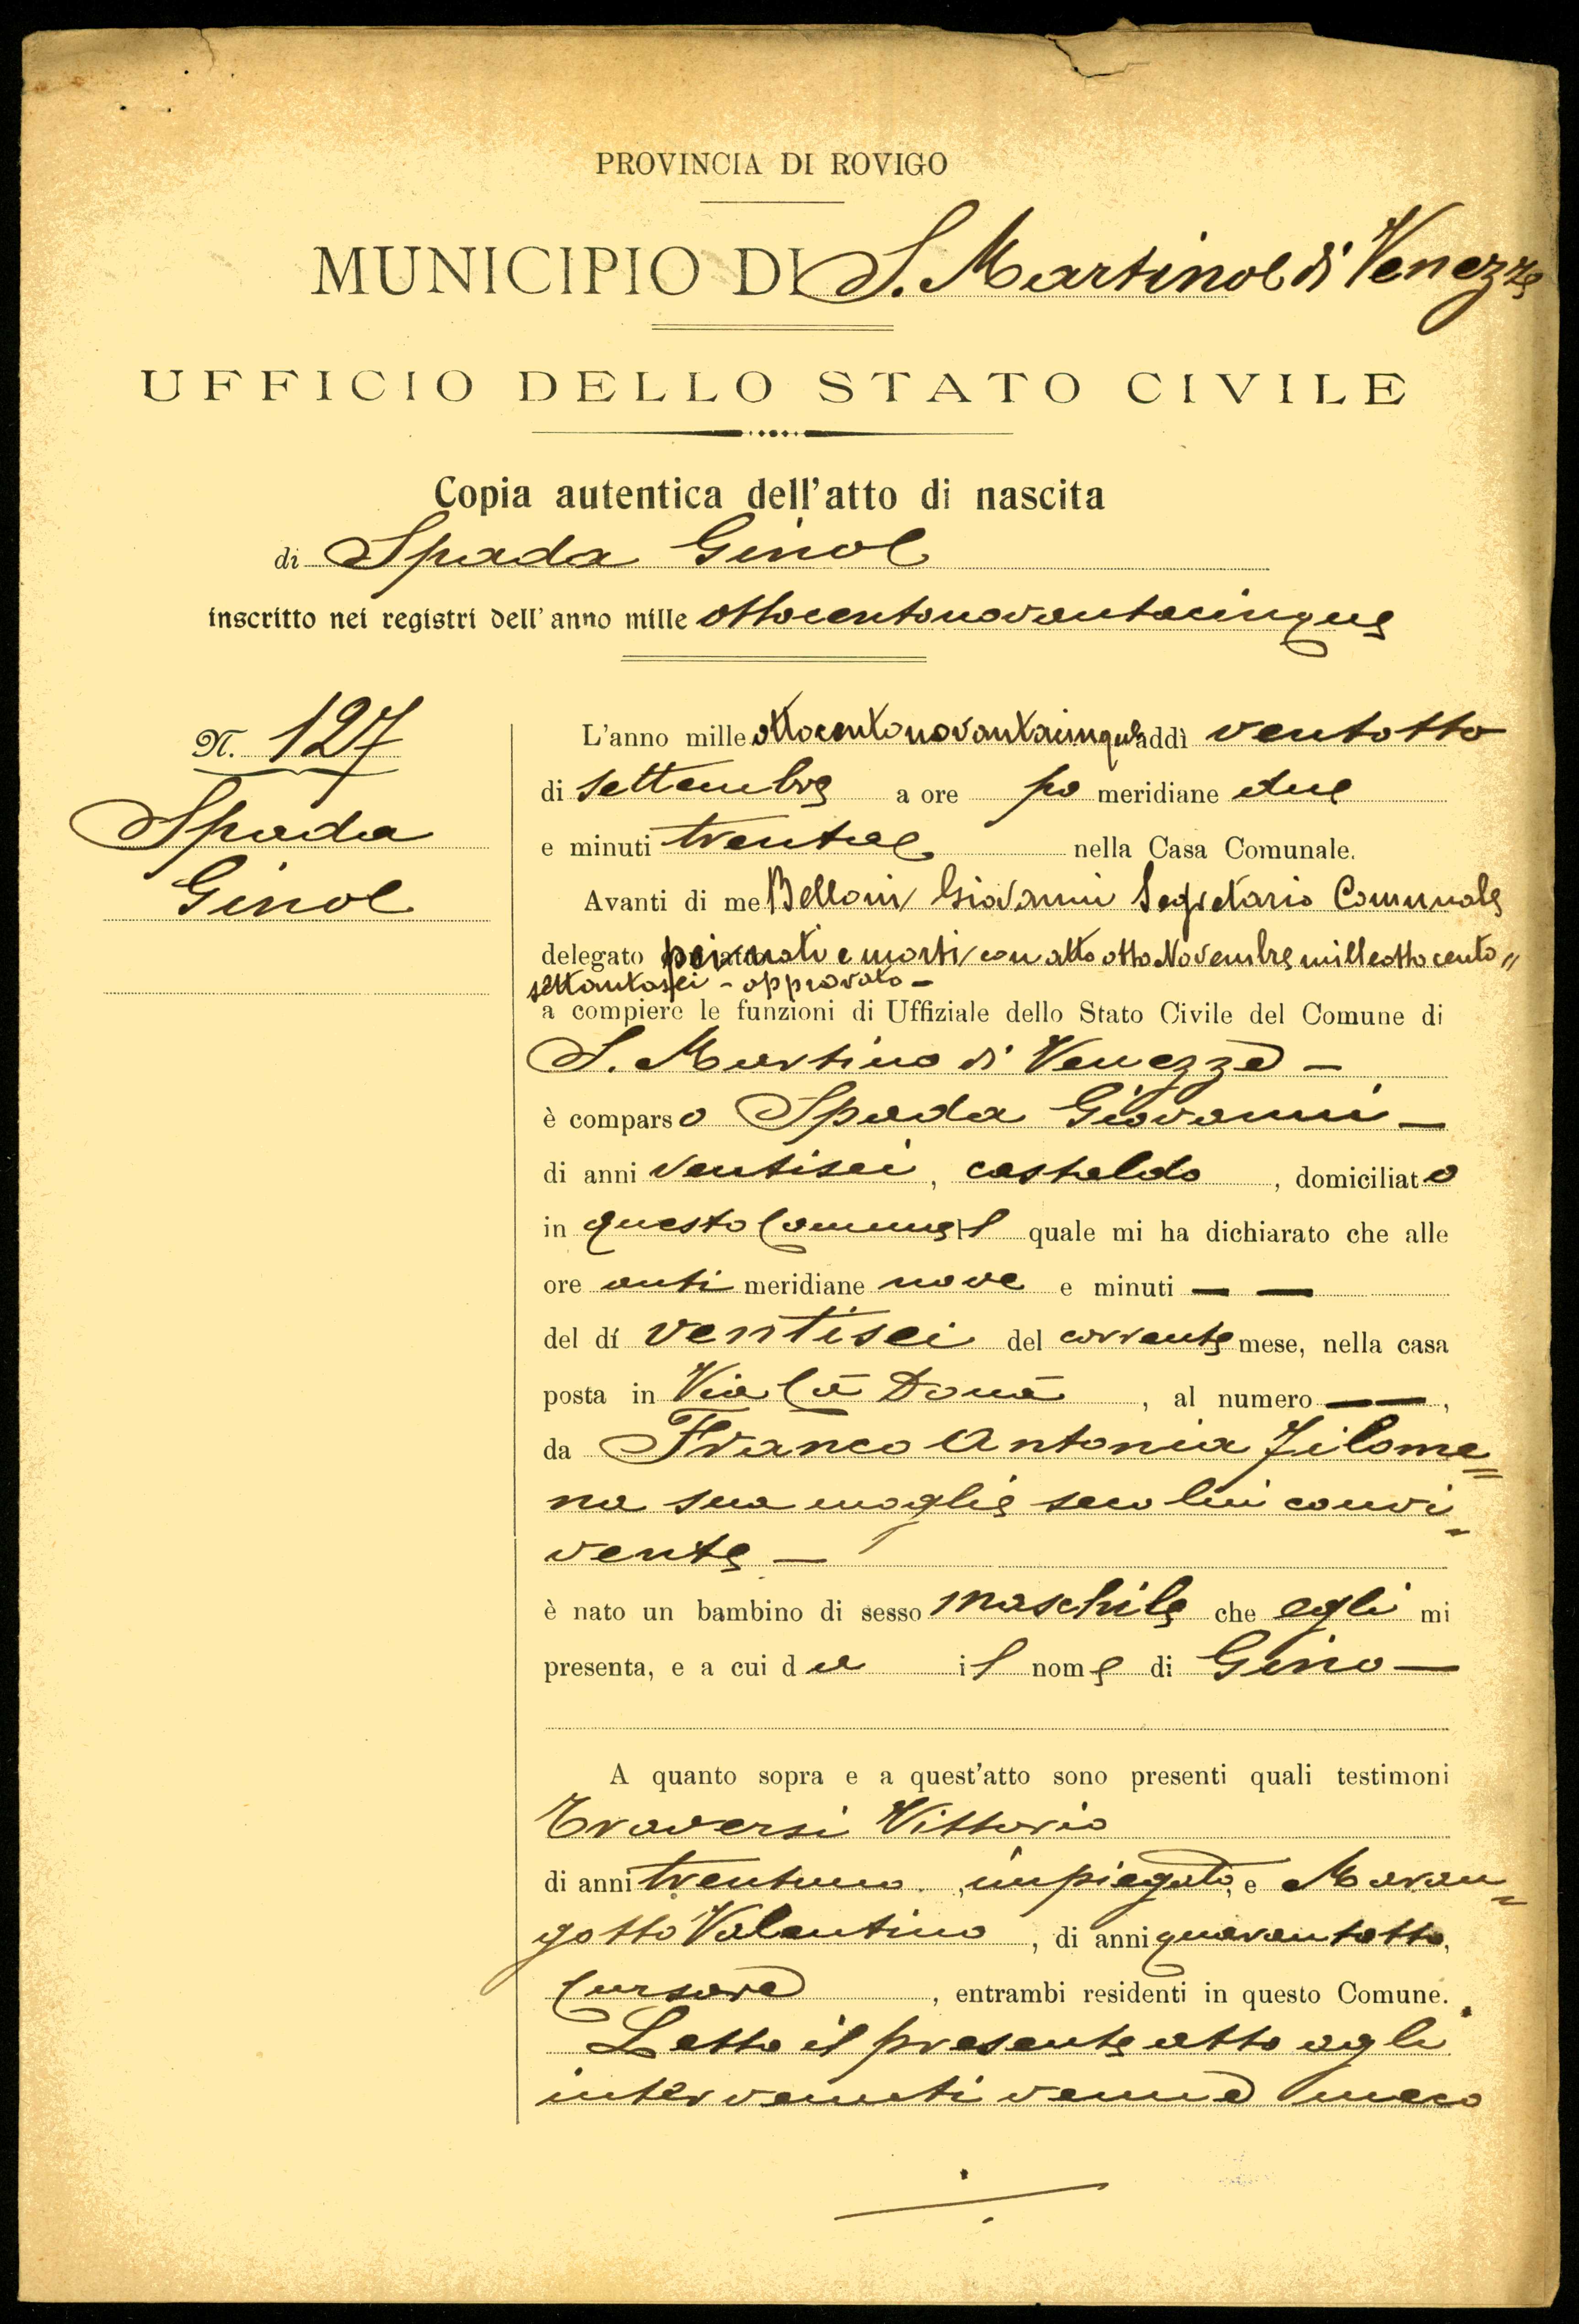 PROVINCIA DI ROVIGO
MUNICIPIO DI S. Martino di Venezze
UFFICIO DELLO STATO CIVILE
Copia autentica dell'atto di nascita
di Spada Gino
inscritto nei registri dell'anno mille ottocentonovantacinque
N. 127
Spada
Gino
L'anno mille ottocentonovantacinque addì ventotto
di settembre a ore po meridiane due
e minuti trenta nella Casa Comunale.
Avanti di me Belloni Giovanni Segretario Comunale
delegato pei nati e morti con atto otto Novembre milleottocento"
settantasei - approvato -
a compiere le funzioni di Uffiziale dello Stato Civile del Comune di
S. Martino di Venezze —
è comparso Spada Giovanni —
di anni ventisei, castaldo, domiciliato
in questo Comune il quale mi ha dichiarato che alle
ore anti meridiane nove e minuti — —
del dí ventisei del corrente mese, nella casa
posta in Via Cà Donà, al numero — —,
da Franco Antonia Filome=
na sua moglie seco lui convi-
vente —
è nato un bambino di sesso maschile che egli mi
presenta, e a cui da il nome di Gino —
A quanto sopra e a quest'atto sono presenti quali testimoni
Traversi Vittorio
di anni trentuno, impiegato, e Maran=
gotto Valentino, di anni quarantotto,
Cursore, entrambi residenti in questo Comune.
Letto il presente atto agli
intervenuti venne meco